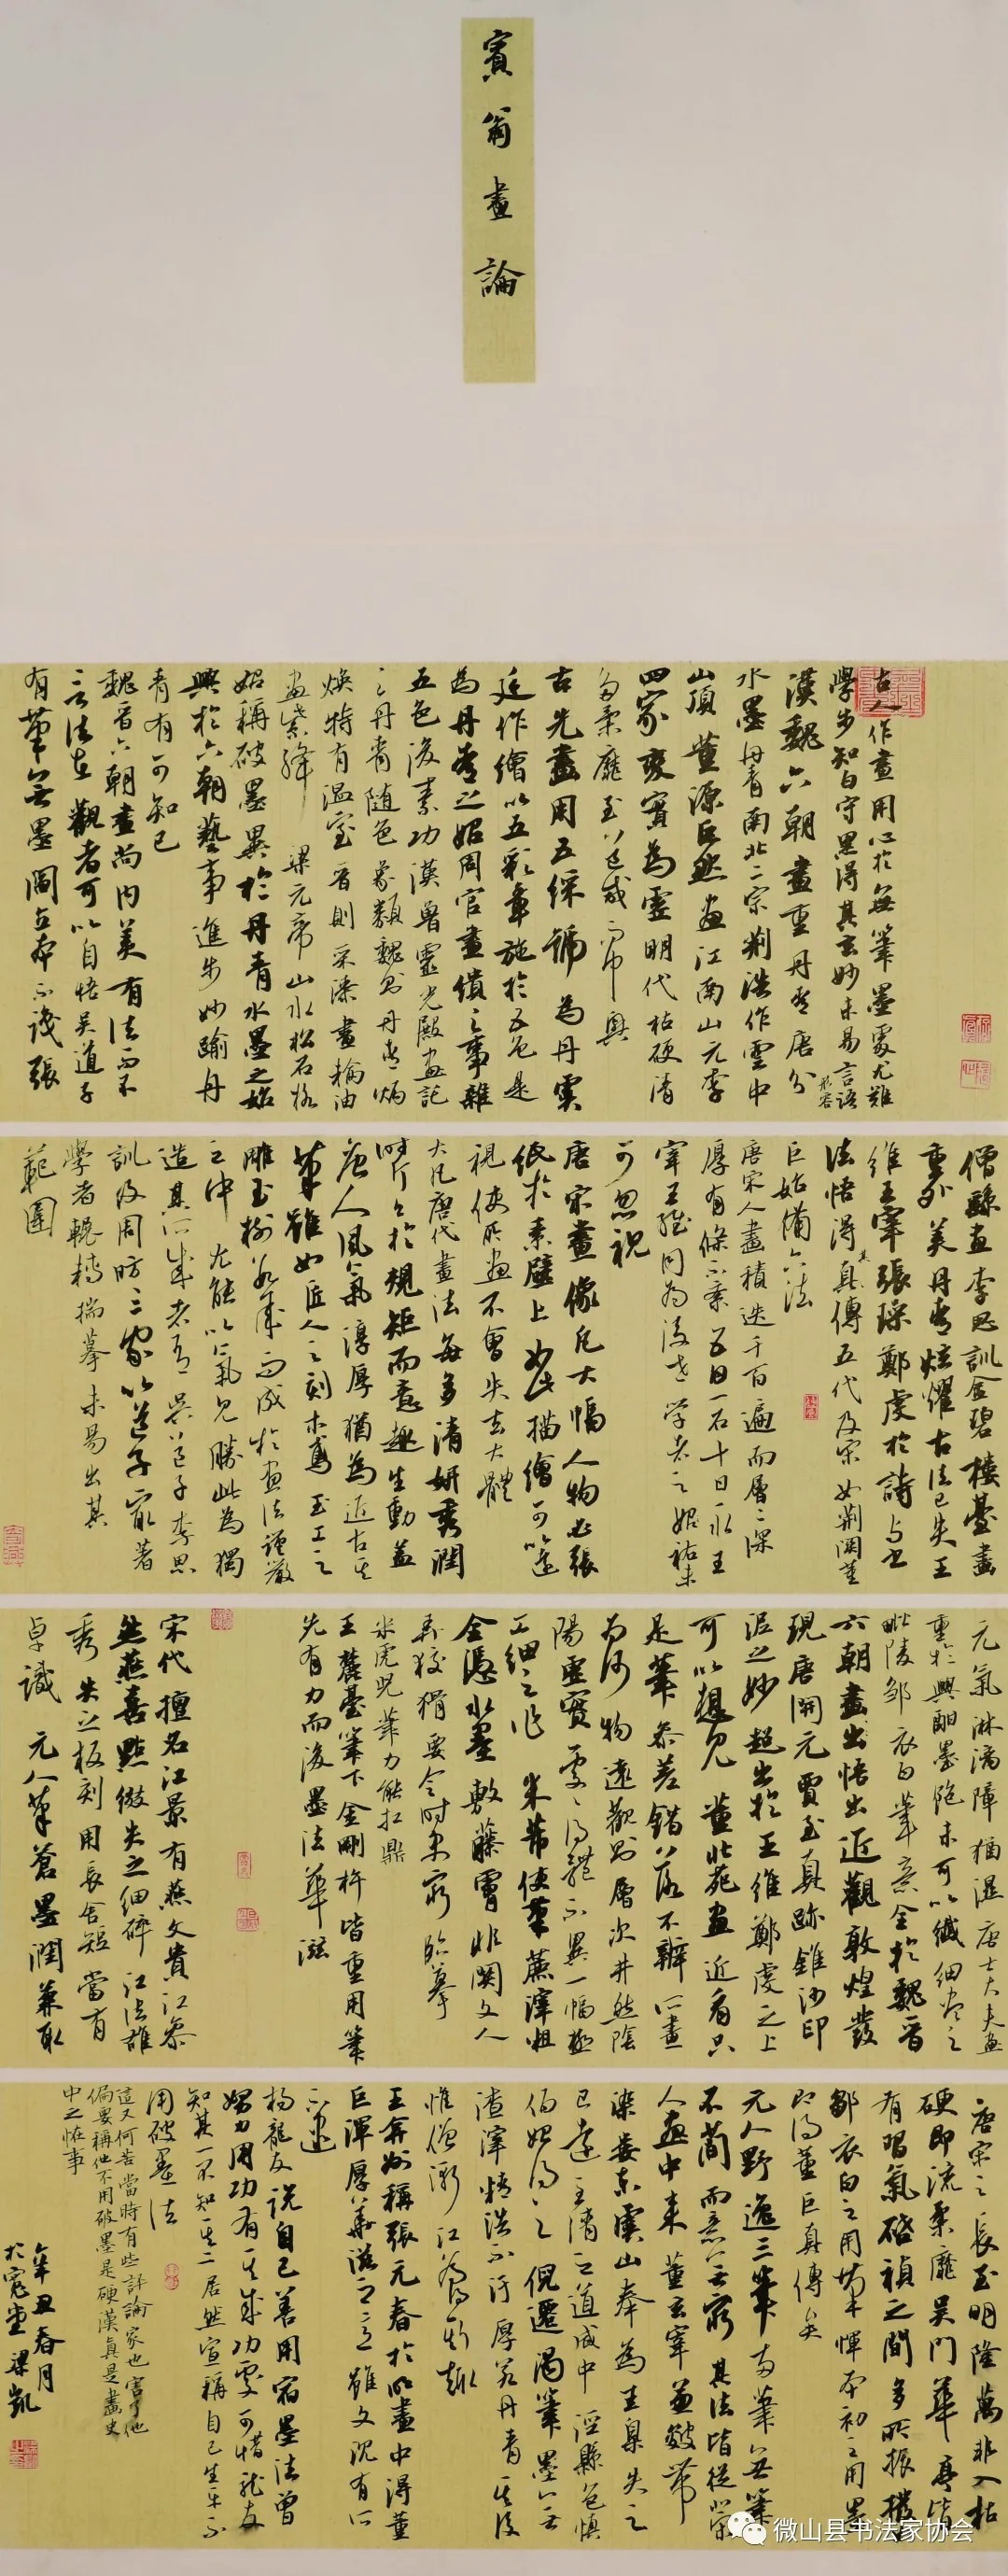 賓翁畫論
古人作畫用心於無筆墨處尤難
學步知白守黑得其玄妙未易言語
形容
漢魏六朝畫重丹青唐分
水墨丹青南北二宗荊浩作雲中
山頂董源巨然畫江南山元季
四家變實為虛明代枯硬清
多柔靡至道咸而中興
古先畫用五綵號為丹雘
廷作繪以五彩章施於五色是
為丹青之始周官畫繢之事雜
五色後素功漢魯靈光殿畫記
之丹青隨色象類魏宮丹青炳
煥特有溫室晉則采漆畫輪油
畫紫絳梁元帝山水松石格
始稱破墨異於丹青水墨之始
興於六朝藝事進步妙踰丹
青有可知已
魏晉六朝畫尚內美有法而不
言法在觀者可以自悟吳道子
有筆無墨閻立本不識張
僧繇畫李思訓金碧樓臺畫
重外美丹青炫耀古法已失王
維王宰張璪鄭虔於詩與書
法悟得其真傳五代及宋如荊關董
巨始備六法
唐宋人畫積迭千百遍而層層深
厚有條不紊五日一石十日一水王
宰王維同為後世學者之始祖未
可忽視
唐宋畫像凡大幅人物必張
紙於素壁上如此描繪可以遠
視使所畫不會失去大體
大凡唐代畫法每多清妍秀潤
時斤斤於規矩而意趣生動蓋
唐人風氣淳厚猶為近古其
筆雖如匠人之刻木鳶玉工之
雕玉楮幾歲而成於畫法謹嚴
之中尤能以氣見勝此為獨
造其所成者有吳道子李思
訓及周昉三家以道子最著
學者輾轉揣摹未易出其
範圍
元氣淋漓障猶濕唐士大夫畫
重於興酣墨飽未可以纖細求之
毗陵鄒衣白筆意全於魏晉
六朝畫出悟出近觀敦煌發
現唐開元賈至真跡錐沙印
泥之妙超出於王維鄭虔之上
可以想見董北苑畫近看只
是筆參差錯落不辨所畫
為何物遠觀則層次井然陰
陽虛實處處得體不異一幅極
工細之作米芾使筆蔗滓粗
全憑水墨敷藤會非關文人
弄狡獪要令時史窮臨摹
米虎兒筆力能扛鼎
王麓臺筆下金剛杵皆重用筆
先有力而後墨法華滋
宋代擅名江景有燕文貴江參
然燕喜點綴失之細碎江法雄
秀失之板刻用長舍短當有
卓識元人筆蒼墨潤兼取
唐宋之長至明隆萬非入枯
硬即流柔靡吳門華亭皆
有習氣啟禎之間多所振拔
鄒衣白之用筆惲本初之用墨
即得董巨真傳矣
元人野逸三筆兩筆無筆
不簡而意無窮其法皆從北宋
人畫中來董玄宰兼皴帶
染婁東虞山奉為圭臬失之
已遠至清之道咸中涇縣包慎
伯始得之倪迂渴筆墨無
渣滓精潔不汙厚若丹青其後
惟僧漸江為得斯趣
王弇州稱張元春於明畫中得董
巨渾厚華滋之意雖文沈有所
不逮
楊龍友說自己善用宿墨法曾
努力用功有其成功處可惜龍友
知其一不知其二居然宣稱自己生平不
用破墨法
這又何苦當時有些評論家也害了他
偏要稱他不用破墨是硬漢真是畫史
中之怪事
辛丑春月
於寬堂梁凱
微山县书法家协会